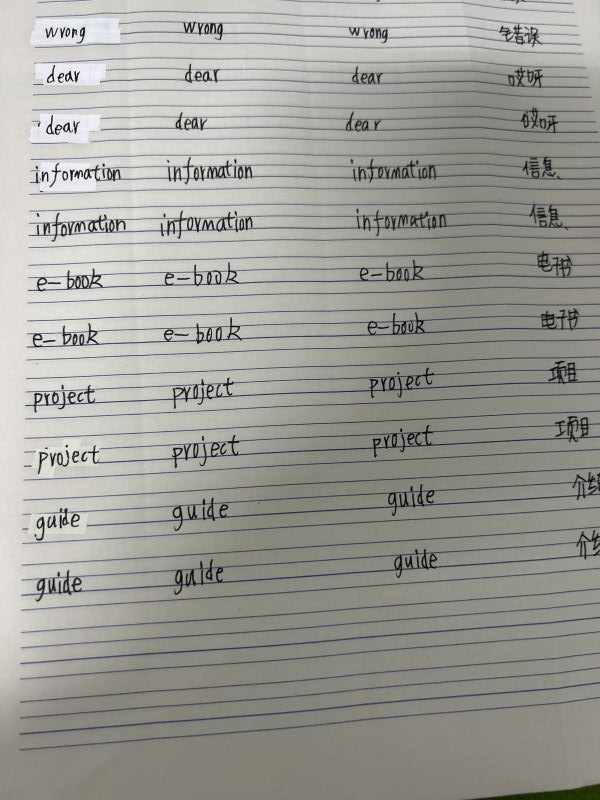 wrong wrong wrong 错误
dear dear dear 哎呀
dear dear dear 哎呀
information information information 信息
information information information 信息
e-book e-book e-book 电子书
e-book e-book e-book 电子书
project project project 项目
project project project 项目
guide guide guide 介绍
guide guide guide 介绍